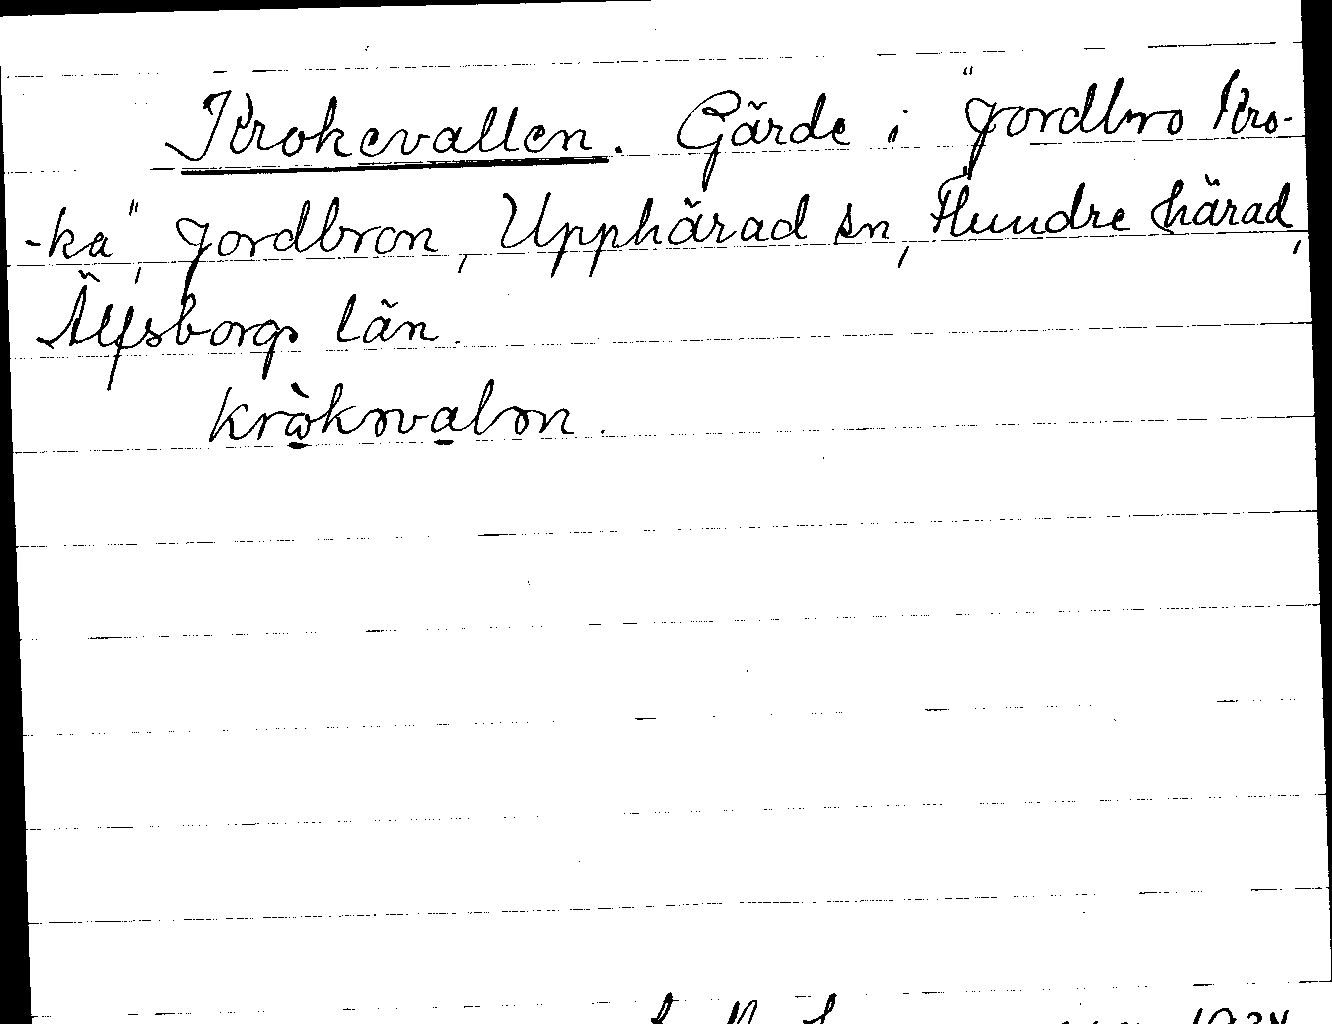 Krokevallen. Gärde i "Jordbro Kro-
-ka", Jordbron, Upphärad sn, Flundre härad,
Älfsborgs län.
kròkəvalən.